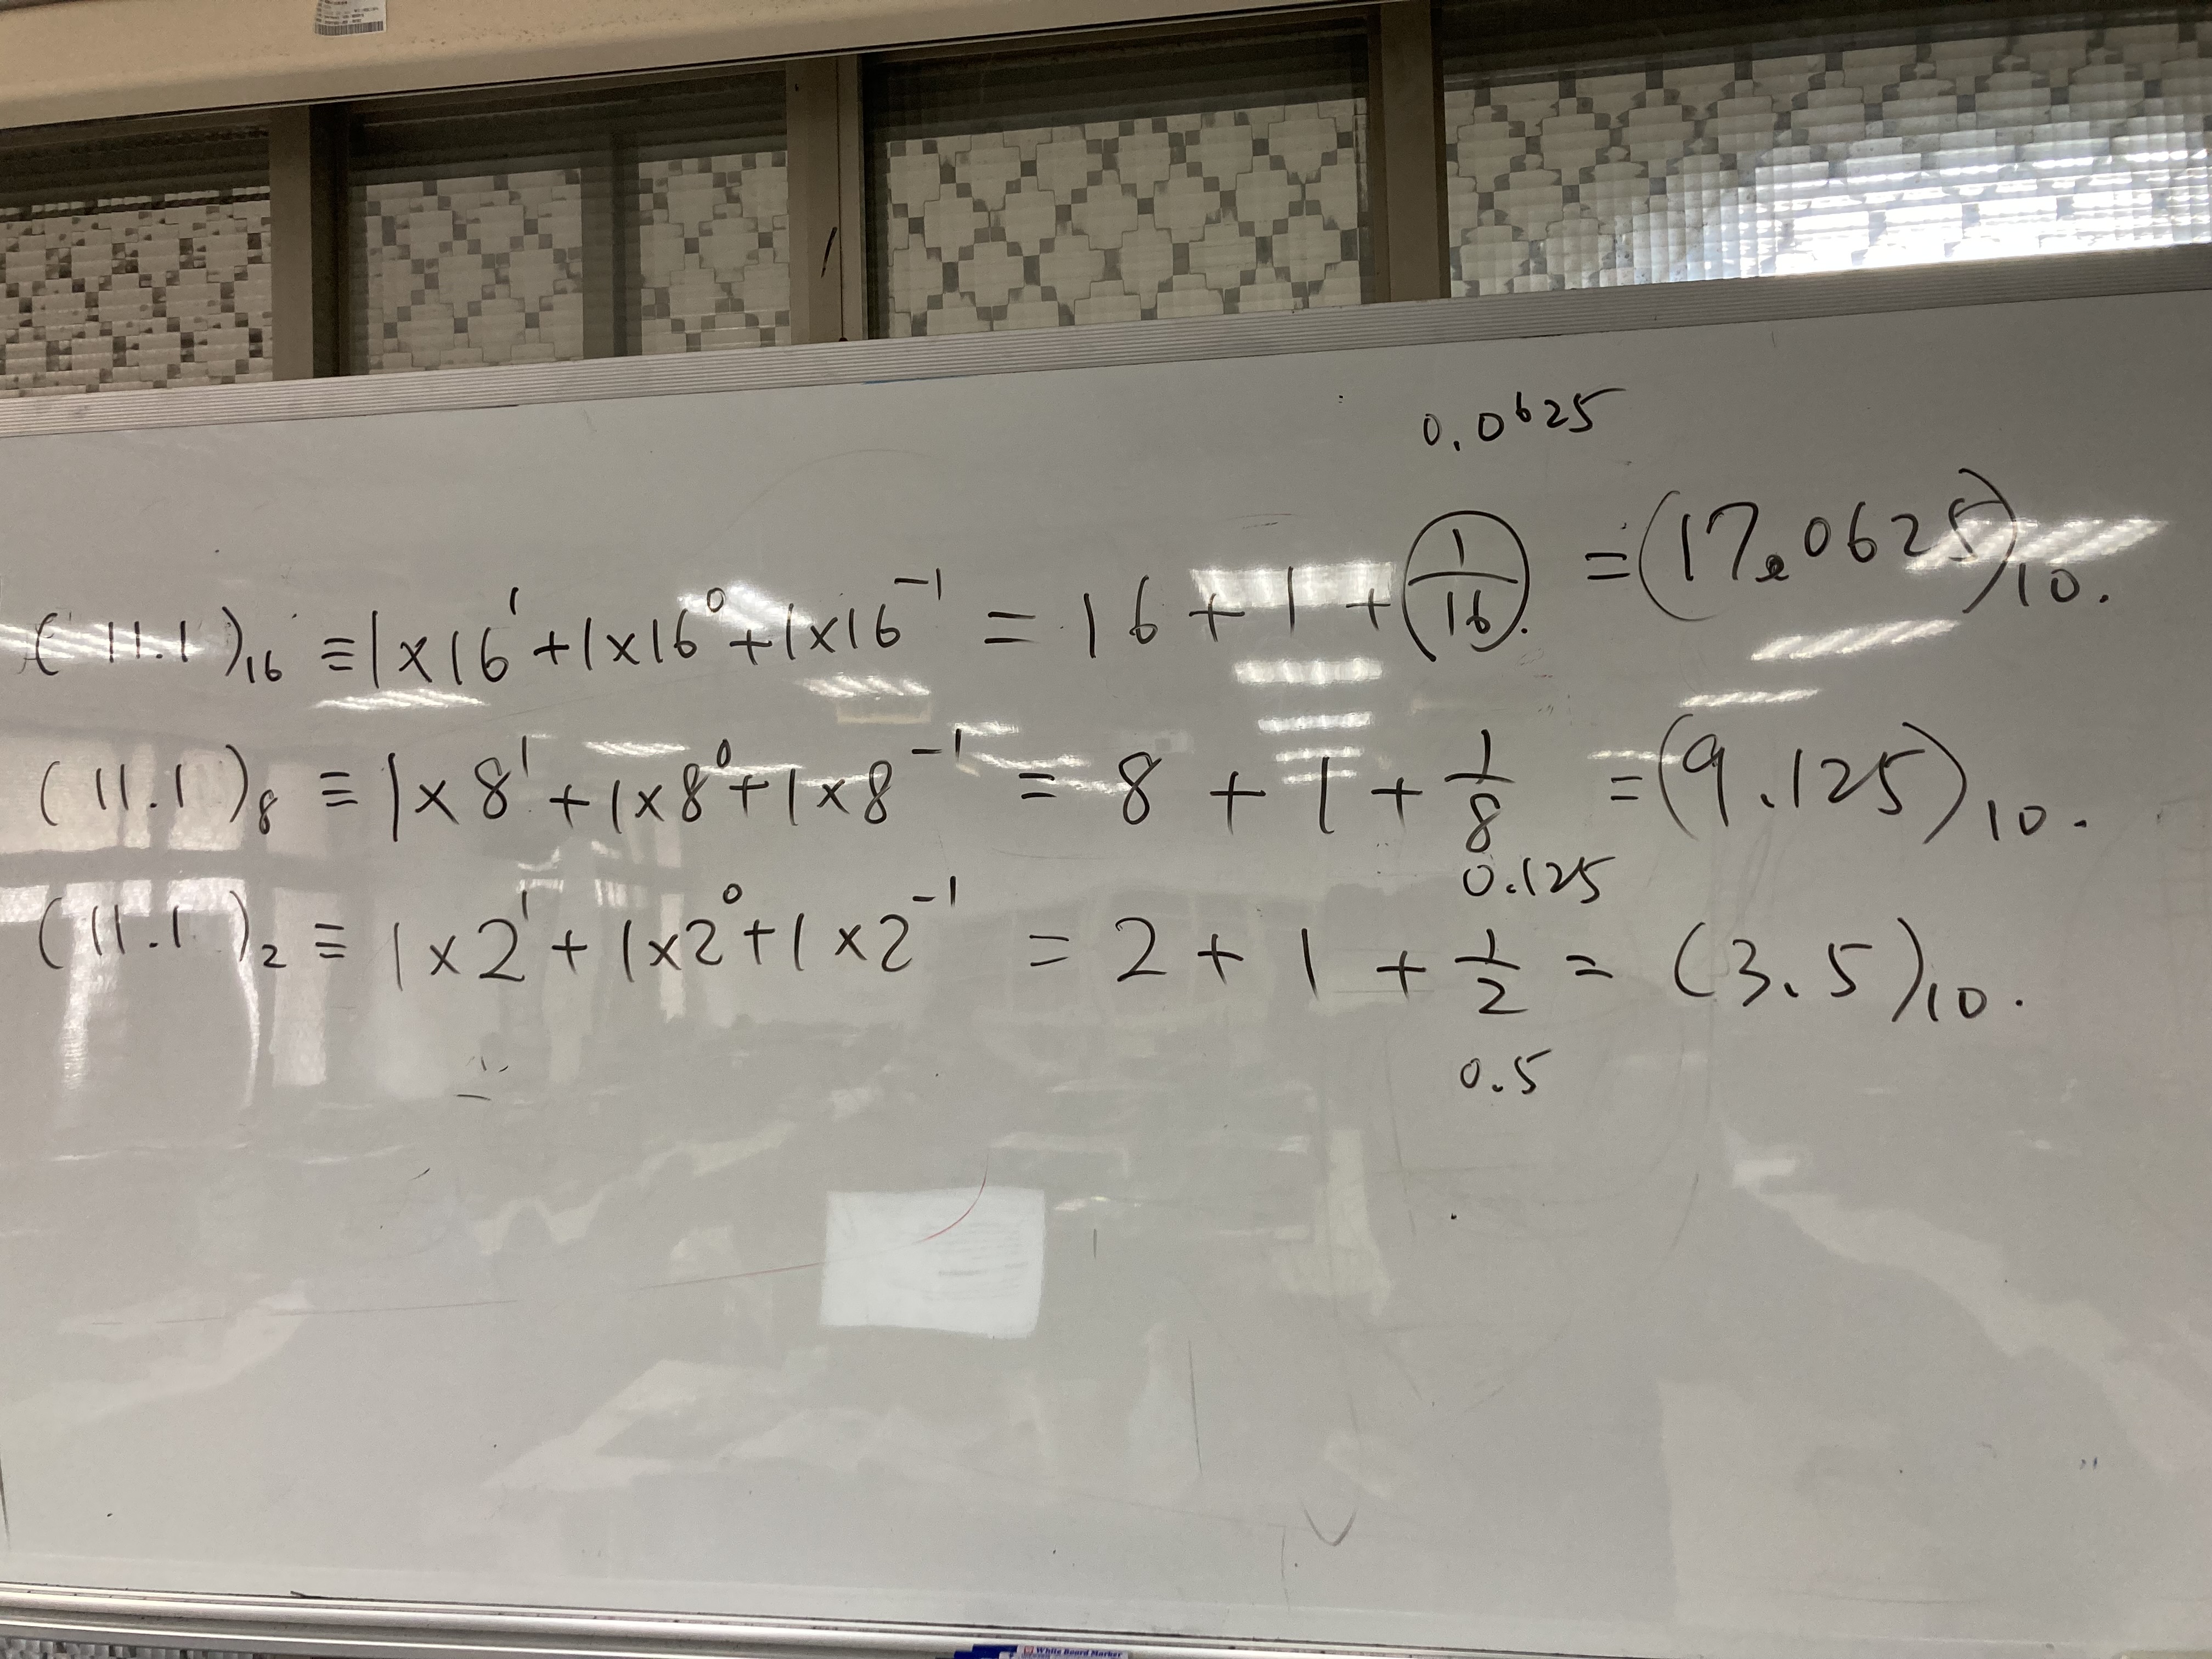 0.0625
(11.1)₁₆ ≡ 1×16¹+1×16⁰+1×16⁻¹ = 16 + 1 + 1/16. = (17.0625)₁₀.
(11.1)₈ ≡ 1×8¹+1×8⁰+1×8⁻¹ = 8 + 1 + 1/8 = (9.125)₁₀.
0.125
(11.1)₂ ≡ 1×2¹+1×2⁰+1×2⁻¹ = 2 + 1 + 1/2 = (3.5)₁₀.
0.5
White Board Marker